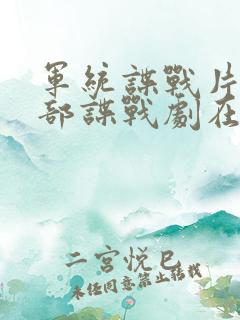 軍統諜戰片
部諜戰劇在
二宮悅巳
未经同意禁止转载